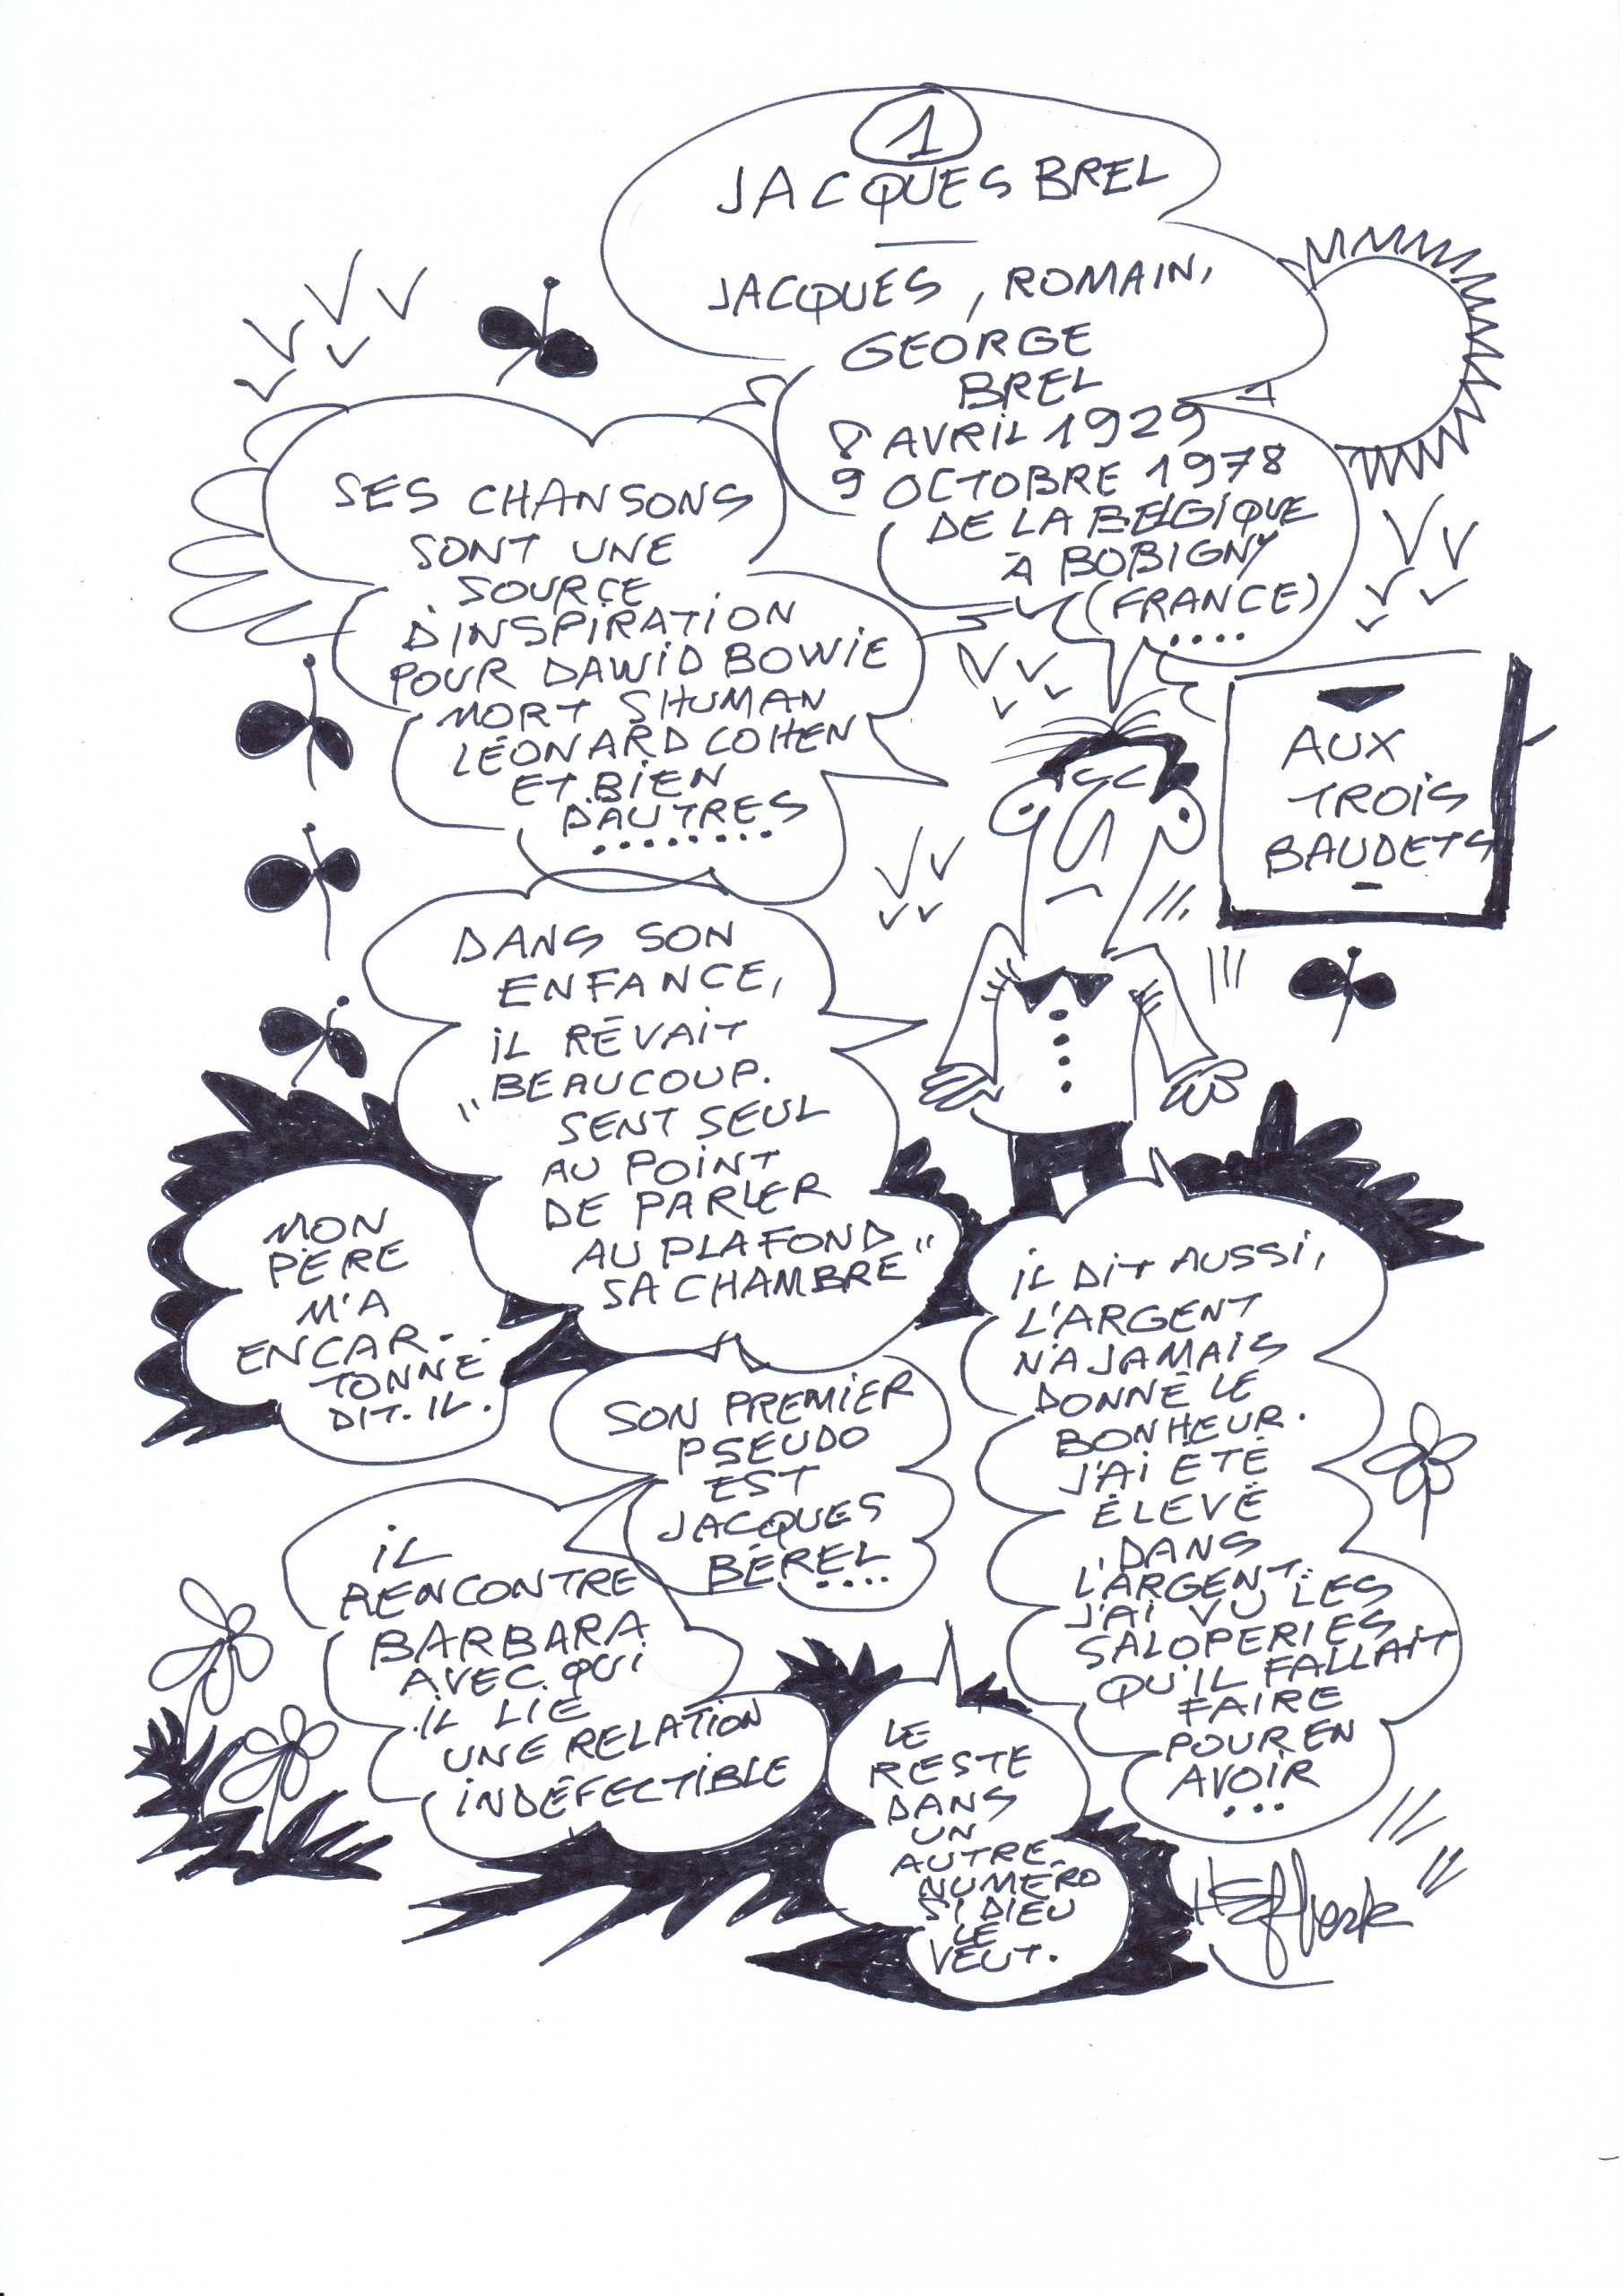 1
JACQUES BREL
JACQUES, ROMAIN,
GEORGE
BREL
8 AVRIL 1929
9 OCTOBRE 1978
DE LA BELGIQUE
À BOBIGNY
(FRANCE)
....
SES CHANSONS
SONT UNE
SOURCE
D'INSPIRATION
POUR DAWID BOWIE
MORT SHUMAN
LÉONARD COHEN
ET BIEN
D'AUTRES
........
AUX
TROIS
BAUDETS
DANS SON
ENFANCE,
IL RÉVAIT
BEAUCOUP.
"SENT SEUL
AU POINT
DE PARLER
AU PLAFOND
SA CHAMBRE"
MON
PÈRE
M'A
ENCAR-
TONNÉ
DIT-IL.
SON PREMIER
PSEUDO
EST
JACQUES
BÉREL
....
IL DIT AUSSI,
L'ARGENT
N'A JAMAIS
DONNÉ LE
BONHEUR.
J'AI ÉTÉ
ÉLEVÉ
DANS
L'ARGENT.
J'AI VU LES
SALOPERIES
QU'IL FALLAIT
FAIRE
POUR EN
AVOIR
...
IL
RENCONTRE
BARBARA
AVEC QUI
IL LIE
UNE RELATION
INDÉFECTIBLE
LE
RESTE
DANS
UN
AUTRE
NUMÉRO
SI DIEU
LE
VEUT.